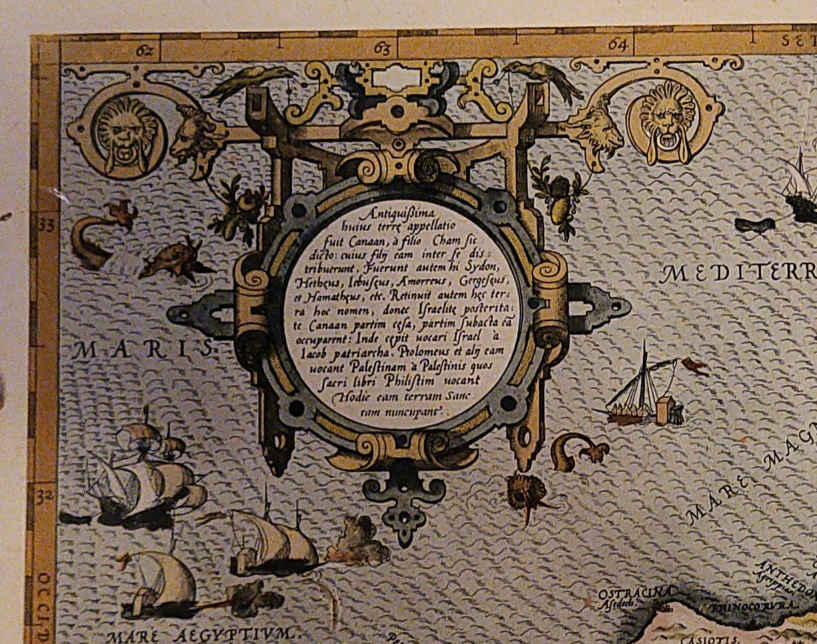 62 63 64 SE
33
32
OCCID
Antiquißima
huius terrę appellatio
fuit Canaan, à filio Cham sic
dicto: cuius filij eam inter se dis-
tribuerunt. Fuerunt autem hi Sydon,
Hethęus, Iebusęus, Amorreus, Gergesęus,
et Hamathęus, etc. Retinuit autem hęc ter-
ra hoc nomen, donec Israelitę posterita-
te Canaan partim cęsa, partim subacta eā
occuparent: Inde cępit uocari Israel à
Iacob patriarcha. Ptolomeus et alij eam
uocant Palestinam à Palestinis quos
sacri libri Philistim uocant
Hodie eam terram Sanc-
tam nuncupant.
MEDITERR
MARIS
MARE MAGN
MARE AEGYPTIVM.
OSTRACINA
RHINOCORVRA.
ANTHEDO
CASIOTIS